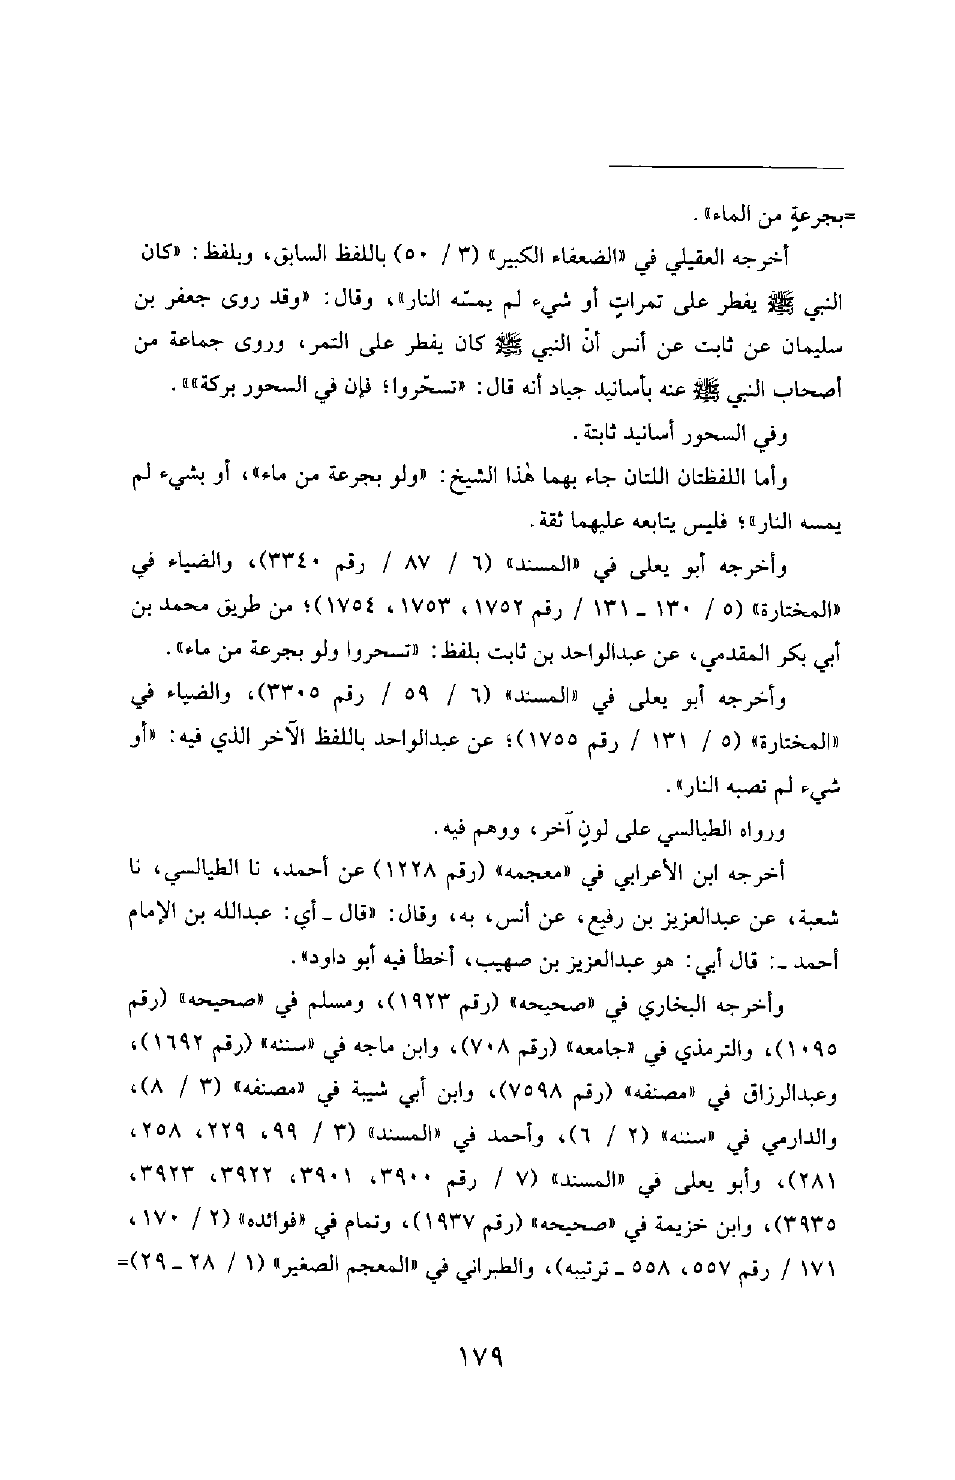 =بجرعةٍ من الماء».
أخرجه العقيلي في «الضعفاء الكبير» (٣ / ٥٠) باللفظ السابق، وبلفظ: «كان
النبي ﷺ يفطر على تمراتٍ أو شيء لم يمسّه النار»، وقال: «وقد روى جعفر بن
سليمان عن ثابت عن أنس أنّ النبي ﷺ كان يفطر على التمر، وروى جماعة من
أصحاب النبي ﷺ عنه بأسانيد جياد أنه قال: «تسحّروا؛ فإن في السحور بركة»».
وفي السحور أسانيد ثابتة.
وأما اللفظتان اللتان جاء بهما هٰذا الشيخ: «ولو بجرعة من ماء»، أو بشيء لم
يمسه النار»؛ فليس يتابعه عليهما ثقة.
وأخرجه أبو يعلى في «المسند» (٦ / ٨٧ / رقم ٣٣٤٠)، والضياء في
«المختارة» (٥ / ١٣٠ - ١٣١ / رقم ١٧٥٢، ١٧٥٣، ١٧٥٤)؛ من طريق محمد بن
أبي بكر المقدمي، عن عبدالواحد بن ثابت بلفظ: «تسحروا ولو بجرعة من ماء».
وأخرجه أبو يعلى في «المسند» (٦ / ٥٩ / رقم ٣٣٠٥)، والضياء في
«المختارة» (٥ / ١٣١ / رقم ١٧٥٥)؛ عن عبدالواحد باللفظ الآخر الذي فيه: «أو
شيء لم تصبه النار».
ورواه الطيالسي على لونٍ آخر، ووهم فيه.
أخرجه ابن الأعرابي في «معجمه» (رقم ١٢٢٨) عن أحمد، نا الطيالسي، نا
شعبة، عن عبدالعزيز بن رفيع، عن أنس، به، وقال: «قال - أي: عبدالله بن الإمام
أحمد -: قال أبي: هو عبدالعزيز بن صهيب، أخطأ فيه أبو داود».
وأخرجه البخاري في «صحيحه» (رقم ١٩٢٣)، ومسلم في «صحيحه» (رقم
١٠٩٥)، والترمذي في «جامعه» (رقم ٧٠٨)، وابن ماجه في «سننه» (رقم ١٦٩٢)،
وعبدالرزاق في «مصنفه» (رقم ٧٥٩٨)، وابن أبي شيبة في «مصنفه» (٣ / ٨)،
والدارمي في «سننه» (٢ / ٦)، وأحمد في «المسند» (٣ / ٩٩، ٢٢٩، ٢٥٨،
٢٨١)، وأبو يعلى في «المسند» (٧ / رقم ٣٩٠٠، ٣٩٠١، ٣٩٢٢، ٣٩٢٣،
٣٩٣٥)، وابن خزيمة في «صحيحه» (رقم ١٩٣٧)، وتمام في «فوائده» (٢ / ١٧٠،
١٧١ / رقم ٥٥٧، ٥٥٨ - ترتيبه)، والطبراني في «المعجم الصغير» (١ / ٢٨ - ٢٩)=
١٧٩